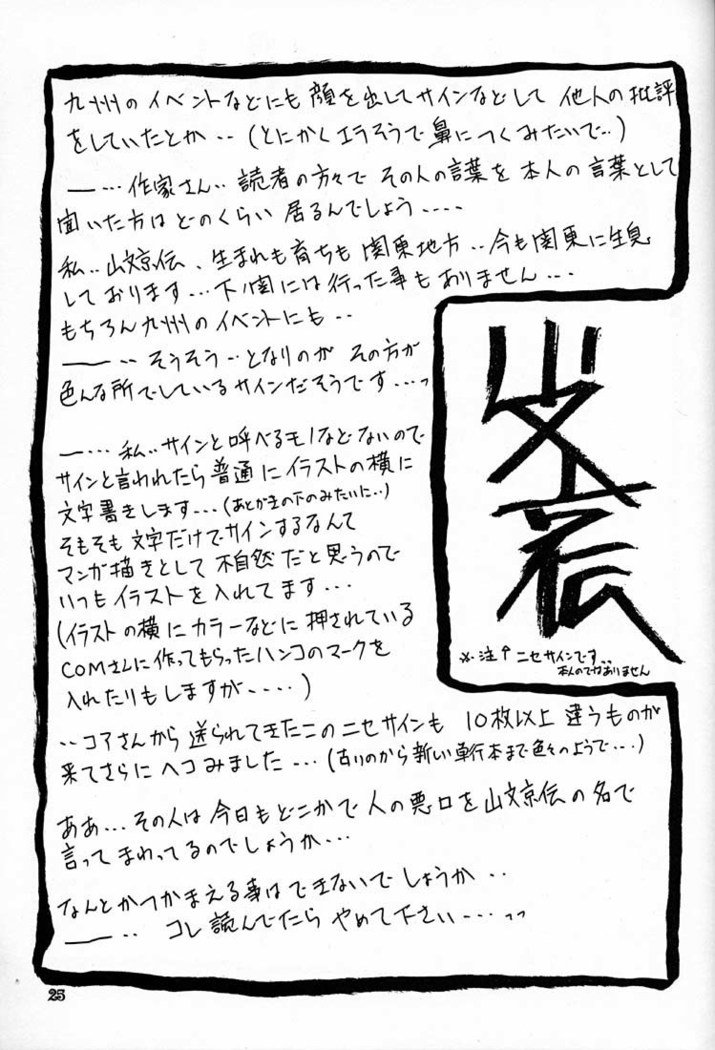 九州のイベントなどにも顔を出してサインなどして他人の批評
をしていたとか‥(とにかくエラそうで鼻につくみたいで‥)
―…作家さん‥読者の方々でその人の言葉を本人の言葉として
聞いた方はどのくらい居るんでしょう‥‥
私‥山文京伝、生まれも育ちも関東地方‥今も関東に生息
しております…下関には行った事もありません…
もちろん九州のイベントにも‥
―‥そうそう‥となりのがその方が
色んな所でしているサインだそうです…っ
山文京伝
※注↑ニセサインです‥
本人のではありません
―…私‥サインと呼べるモノなどないので
サインと言われたら普通にイラストの横に
文字書きします…(あとがきの下のみたいに‥)
そもそも文字だけでサインするなんて
マンガ描きとして不自然だと思うので
いつもイラストを入れてます…
(イラストの横にカラーなどに押されている
COMさんに作ってもらったハンコのマークを
入れたりもしますが‥‥)
‥コアさんから送られてきたこのニセサインも10枚以上違うものが
来てさらにヘコみました…(古いのから新しい単行本まで色々のようで…)
ああ…その人は今日もどこかで人の悪口を山文京伝の名で
言ってまわってるのでしょうか…
なんとかつかまえる事はできないでしょうか‥
―‥コレ読んでたらやめて下さい…っっ
25